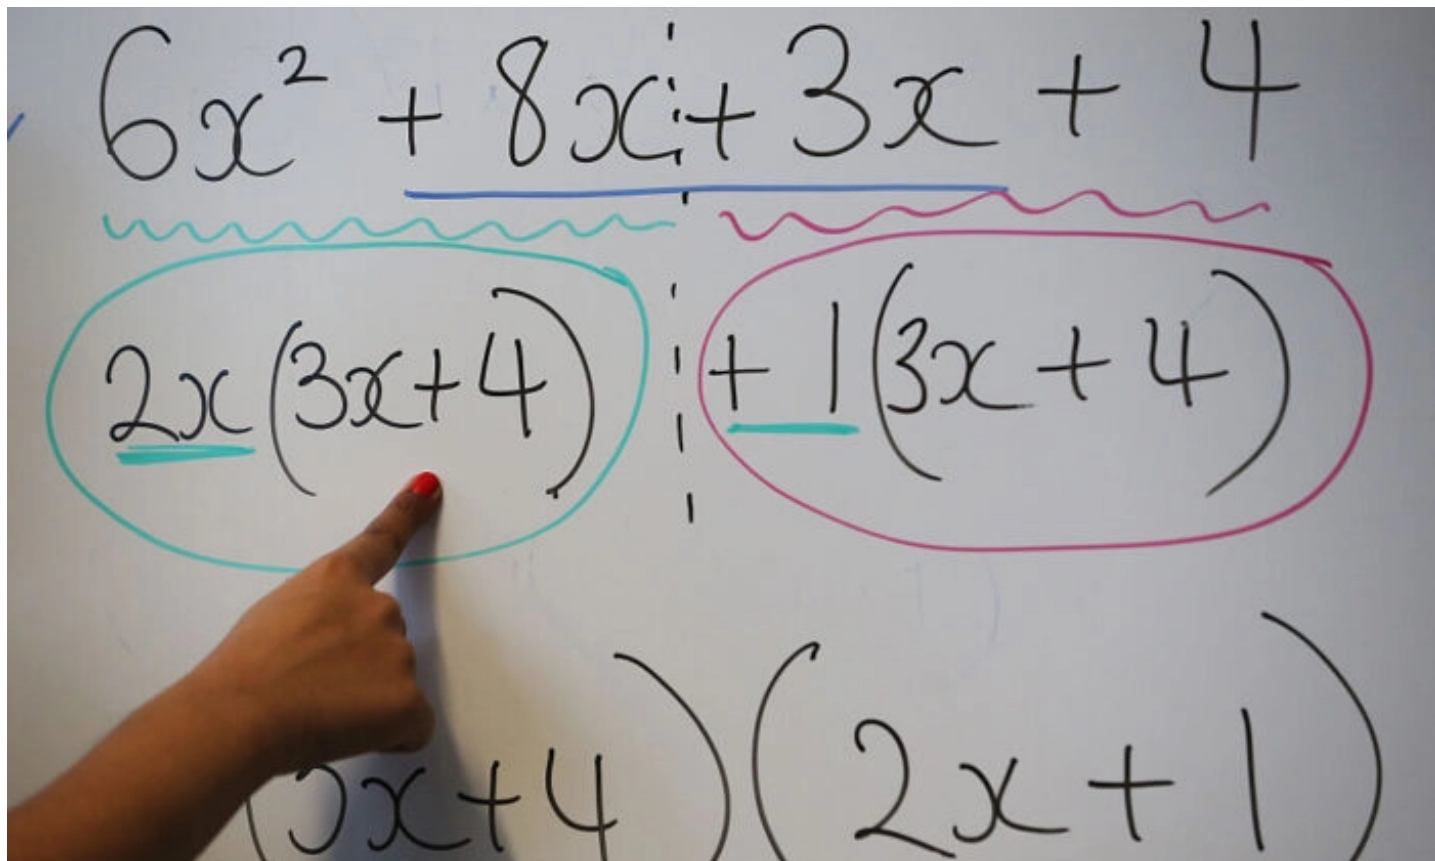 6x² + 8x + 3x + 4
2x(3x+4) + 1(3x + 4)
(3x+4)(2x + 1)